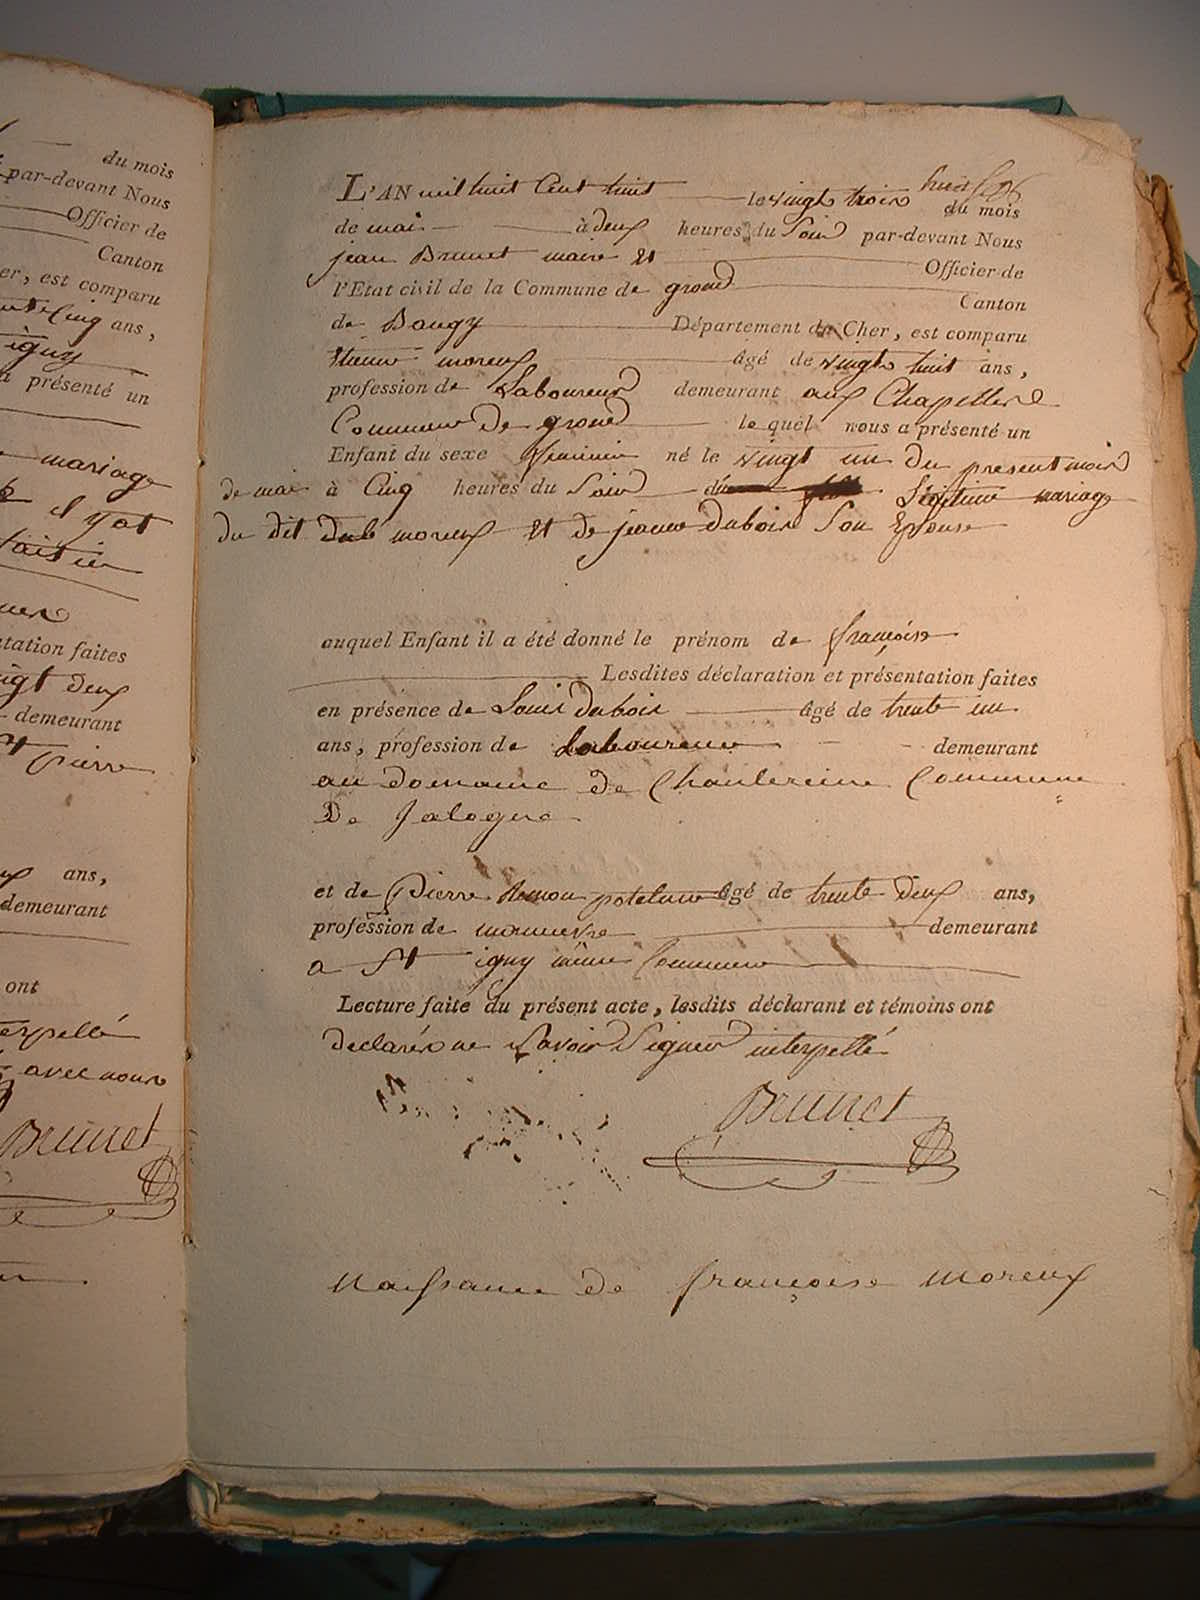 du mois
par-devant Nous
Officier de
Canton
er, est comparu
ans,
igny
a présenté un
mariage
il y at
ntation faites
vingt deux
demeurant
St pierre
ans,
demeurant
ont
interpellé
avec nous
Brunet
L'AN mil huit Cent huit le vingt trois
du mois
de mai à deux heures du Soir par-devant Nous
jean Brunet maire et Officier de
l'Etat civil de la Commune de groud
Canton
de Baugy Département du Cher, est comparu
Etienne moreux âgé de vingt huit ans,
profession de Laboureur demeurant aux Chapelles
Commune de groud lequel nous a présenté un
Enfant du sexe féminin né le vingt un du present mois
de mai à Cinq heures du Soir du Légitime mariage
du dit moreux et de jeanne dubois Son Epouse
auquel Enfant il a été donné le prénom de françoise
Lesdites déclaration et présentation faites
en présence de Louis dubois âgé de trente un
ans, profession de Laboureur demeurant
au domaine de Chantereine Commune
De Jalogne
et de Pierre âgé de trente deux ans,
profession de manuevre demeurant
a St igny même Commune
Lecture faite du présent acte, lesdits déclarant et témoins ont
declarés ne Savoir Signer interpellé
Brunet
Naissance de françoise Moreux